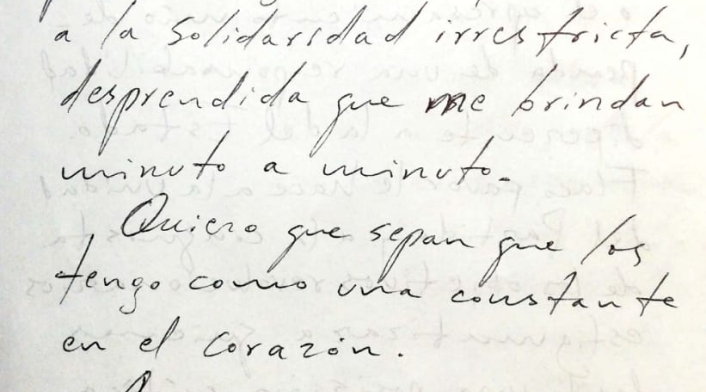 a la solidaridad irrestricta,
desprendida que me brindan
minuto a minuto.
Quiero que sepan que los
tengo como una constante
en el corazón.